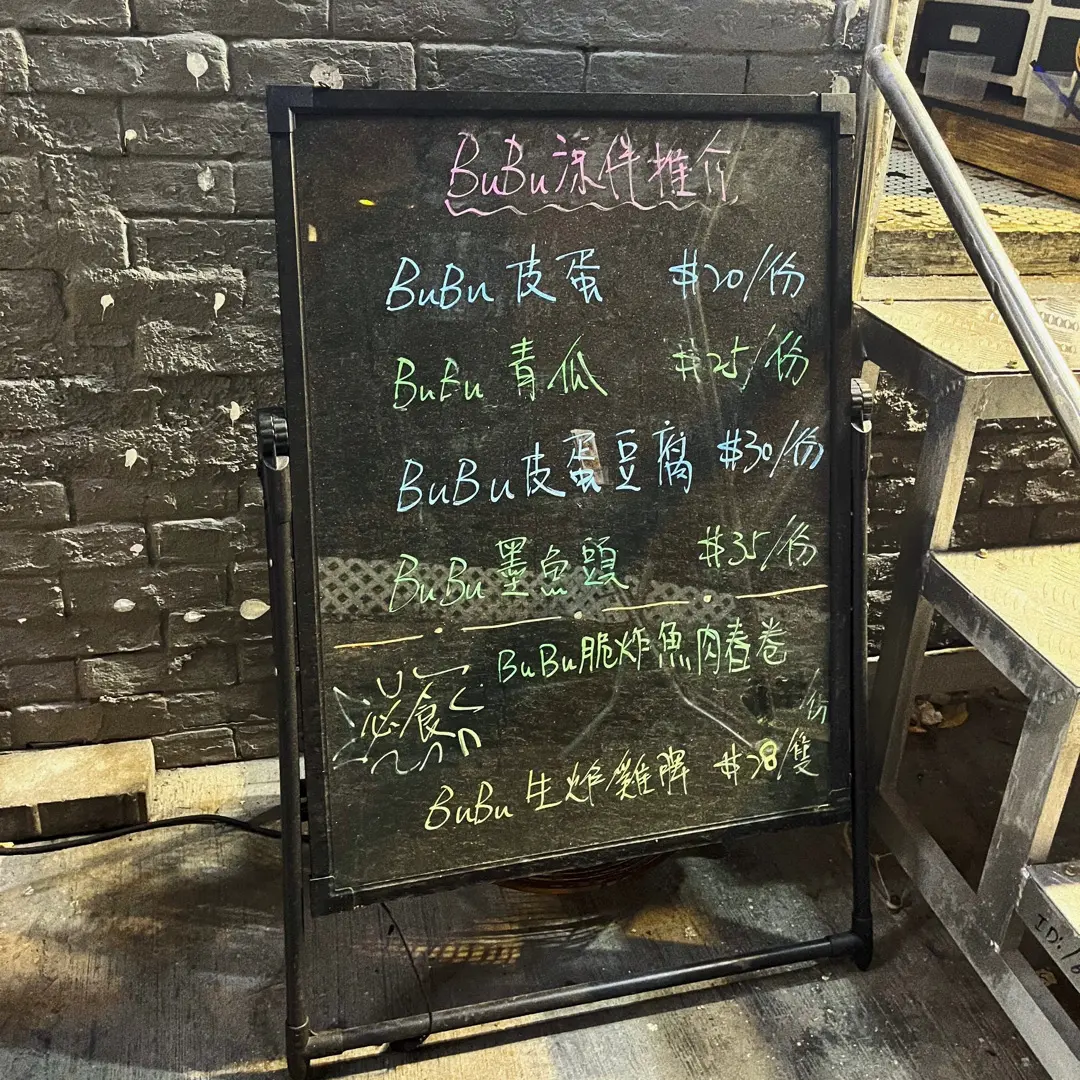 BuBu涼伴推介
BuBu 皮蛋 $20/份
BuBu 青瓜 $25/份
BuBu皮蛋豆腐 $30/份
BuBu 墨魚頭 $35/份
BuBu脆炸魚肉春卷
/份
必食
BuBu 生炸雞髀 $28/隻
ID: